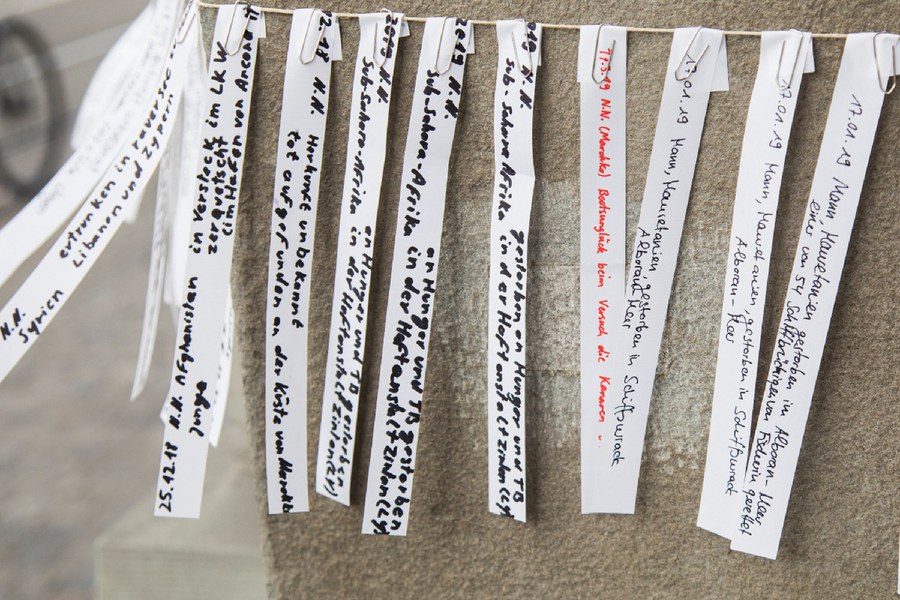 N.N. ertrunken in reverse
Syrien Libanon und Zypern
25.12.18 N.N. Afghanistan in Versteck im LKW
zerquetscht (im Hafen von Ancona
12.18 N.N. Herkunft unbekannt
tot aufgefunden an der Küste von Marokko
N.N. an Hunger und TB gestorben
Sub-Sahara-Afrika in der Haftanstalt Zintan (Ly)
2019 N.N. an Hunger und TB gestorben
Sub-Sahara Afrika in der Haftanstalt Zintan (Ly)
N.N. gestorben an Hunger und TB
Sub Sahara Afrika in der Haftanstalt Zintan (Ly)
N.N. (Marokko) Bootsunglück beim Versuch die Kanaren
17.01.19 Mann, Mauretanien, gestorben in Schiffswrack
Alboran-Meer
17.01.19 Mann, Mauretanien, gestorben in Schiffswrack
Alboran-Meer
17.01.19 Mann, Mauretanien gestorben im Alboran-Meer
einer von 54 Schiffbrüchigen von gerettet